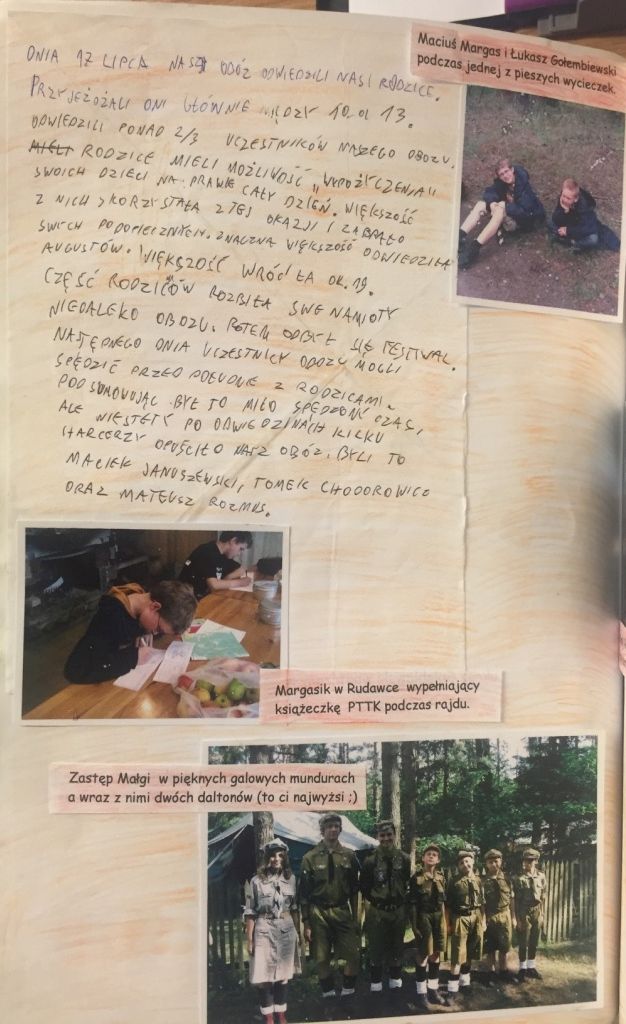 Maciuś Margas i Łukasz Gołembiewski
podczas jednej z pieszych wycieczek.
DNIA 17 LIPCA NASZ OBÓZ ODWIEDZILI NASI RODZICE.
PRZYJEŻDŻALI ONI GŁÓWNIE MIĘDZY 10 A 13.
ODWIEDZILI PONAD 2/3 UCZESTNIKÓW NASZEGO OBOZU.
MIELI RODZICE MIELI MOŻLIWOŚĆ "WYPOŻYCZENIA"
SWOICH DZIECI NA PRAWIE CAŁY DZIEŃ. WIĘKSZOŚĆ
Z NICH SKORZYSTAŁA Z TEJ OKAZJI I ZABRAŁO
SWYCH PODOPIECZNYCH. ZNACZNA WIĘKSZOŚĆ ODWIEDZIŁA
AUGUSTÓW. WIĘKSZOŚĆ WRÓCIŁA OK. 19.
CZĘŚĆ RODZICÓW ROZBIŁA SWE NAMIOTY
NIEDALEKO OBOZU. POTEM ODBYŁ SIĘ FESTIWAL.
NASTĘPNEGO DNIA UCZESTNICY OBOZU MOGLI
SPĘDZIĆ PRZEDPOŁUDNIE Z RODZICAMI.
PODSUMOWUJĄC BYŁ TO MIŁO SPĘDZONY CZAS,
ALE NIESTETY PO ODWIEDZINACH KILKU
HARCERZY OPUŚCIŁO NASZ OBÓZ. BYLI TO
MACIEK JANUSZEWSKI, TOMEK CHODOROWICO
ORAZ MATEUSZ ROZMUS.
Margasik w Rudawce wypełniający
książeczkę PTTK podczas rajdu.
Zastęp Małgi w pięknych galowych mundurach
a wraz z nimi dwóch daltonów (to ci najwyżsi ;)